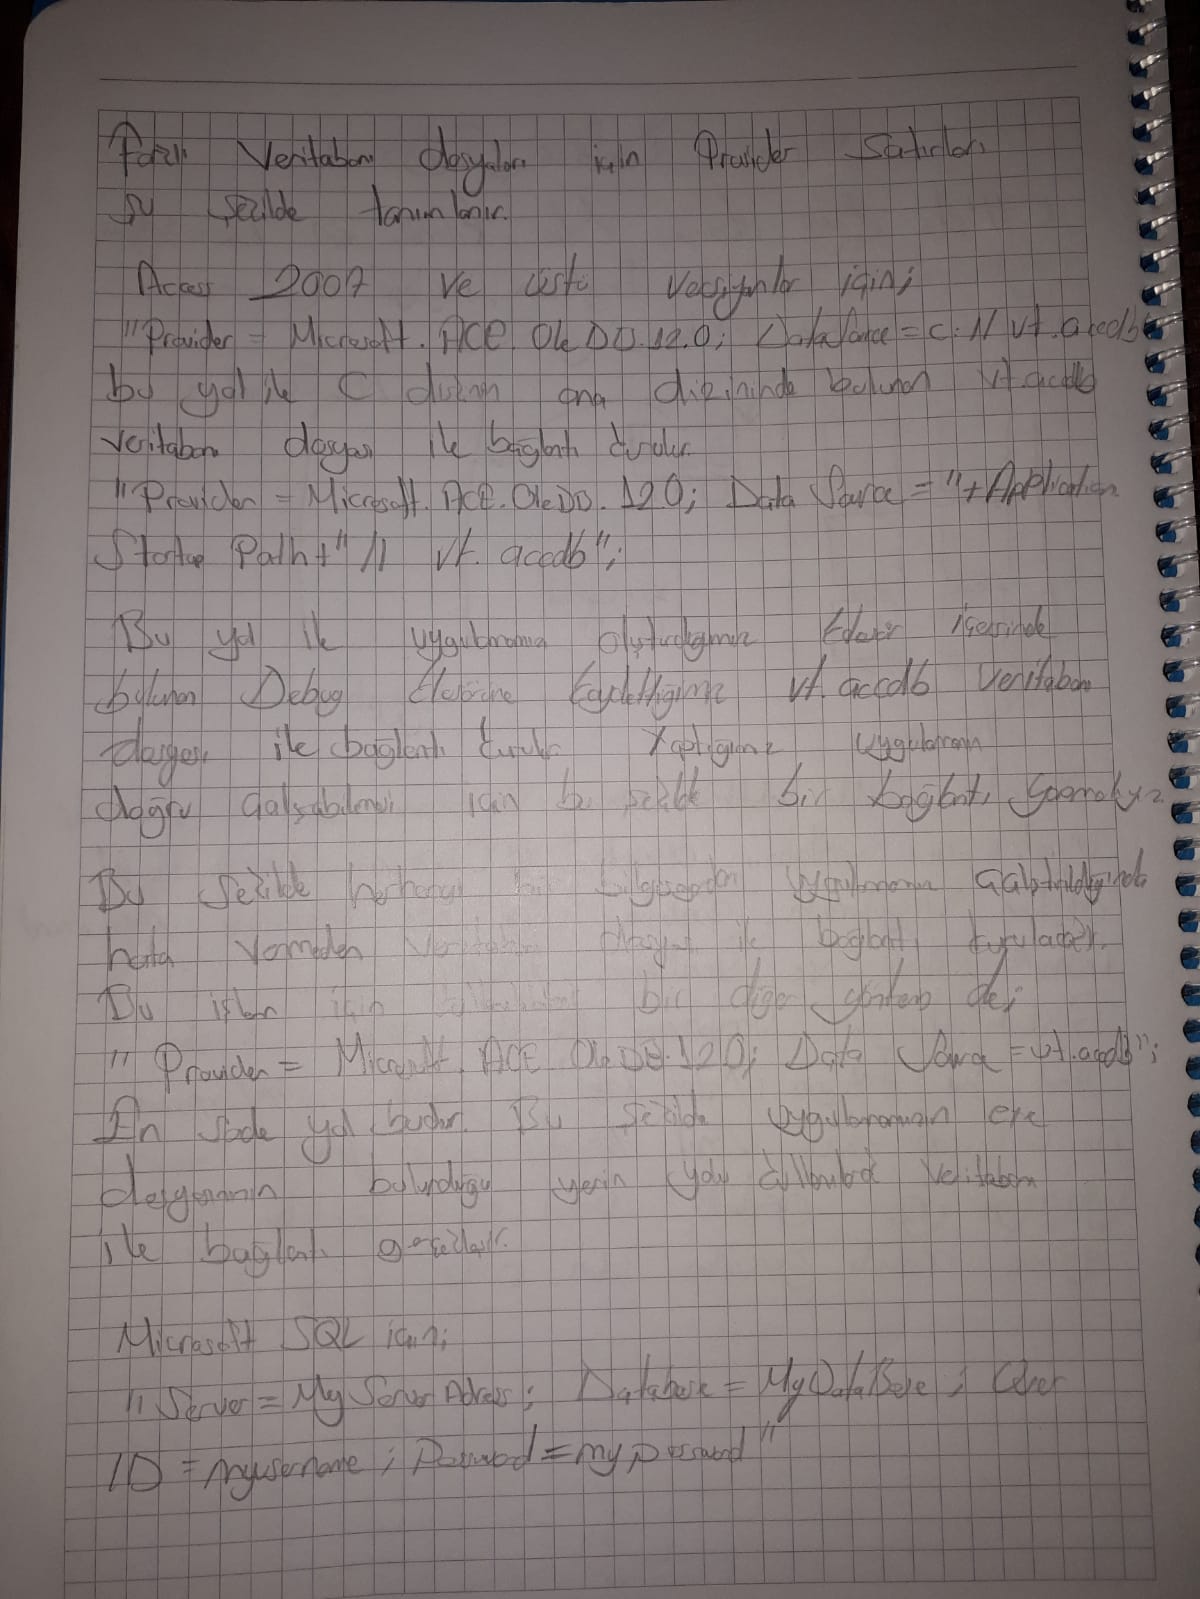 Farklı Veritabanı dosyaları için Provider Satırları
şu şekilde tanımlanır.
Access 2007 ve üstü versiyonlar için;
"Provider = Microsoft. ACE. OleDD.12.0; DataSource = C:\\ vt.accdb
bu yol ile C diskinin ana dizininde bulunan vt.accdb
veritabanı dosyası ile bağlantı kurulur.
"Provider = Microsoft. ACE. OleDD. 12.0; Data Source = "+Application
Startup Path+" \\ vt. accdb";
Bu yol ile uygulamamızı oluşturduğumuz klasör içerisinde
bulunan Debug klasörüne kaydettiğimiz vt.accdb veritabanı
dosyası ile bağlantı kurulur. Yaptığımız uygulamanın
doğru çalışabilmesi için bu şekilde bir bağlantı
Bu şekilde herhangi bir bilgisayardan uygulamamız çalıştırıldığında
hata vermeden veritabanı dosyası ile bağlantı kurulacaktır.
Bu işlem için bir diğer yöntem de;
"Provider = Microsoft. ACE. OleDD.12.0; Data Source = vt.accdb";
En sade yol budur. Bu şekilde uygulamamızın exe
dosyasının bulunduğu yerin yolu kullanılarak veritabanı
ile bağlantı gerçekleşir.
Microsoft SQL için;
"Server = My Server Adress; Database = MyDataBase; User
ID = myusername; Password = my password"